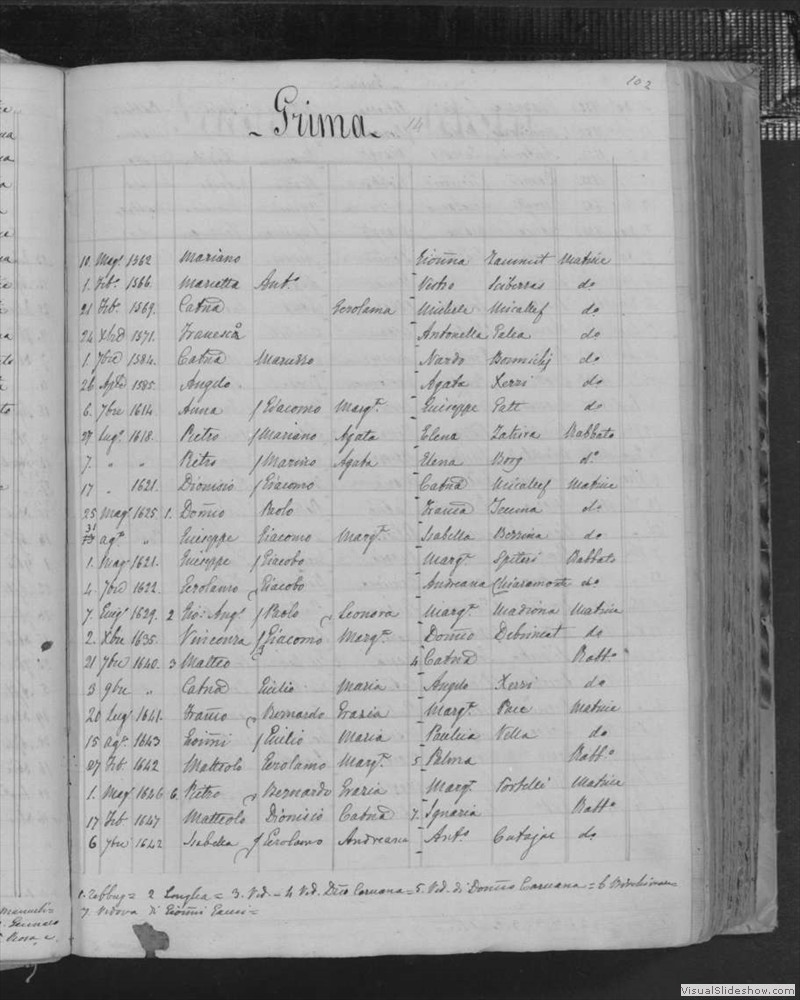 102
- Grima -
14
10 Mag. 1562 Mariano Gioanna Zammit Matrice
1. Feb. 1566. Marietta Ant.o Vestro Sciberras do
21 Feb. 1569. Catna Gerolama Michele Micallef do
24 Xbre 1571. Francesca Antonella Falca do
1. 7bre 1584. Catna Maruzzo Nardo Bonnichj do
26 Aple 1585. Angelo Agata Xerri do
6. 7bre 1614 Anna f Giacomo Margt. Giuseppe Patt do
27 Lug. 1618. Pietro f Mariano Agata Elena Zahira Rabbato
7. " " Pietro f Marino Agata Elena Borg do
17 " 1621. Dionisio f Giacomo Catna Micallef Matrice
25 Mag. 1625 1. Domco Paolo Franca do
31 ag. " Giuseppe Giacomo Margt. Isabella do
1. Mag. 1621. Giuseppe f Giacobo Margt. Spiteri Rabbato
4. 7bre 1622. Gerolamo Giacobo Andreana Chiaramonte do
7. 1629. 2 Gio: Ang. f Paolo Leonora Margt. Madiona Matrice
2. Xbre 1635. Vincenza f Giacomo Margt. Domco Debrincat do
21 7bre 1640. 3 Matteo 4 Catna Rabb.o
3 9bre " Catna Giulio Maria Angelo Xerri do
20 Lug. 1641. Franco Bernardo Grazia Margt. Pace Matrice
15 ag. 1643 Gioanni f Giulio Maria Paulica Vella do
27 Feb. 1642 Matteolo Gerolamo Margt. 5 Palma Rabb.o
1. Mag. 1646 6. Pietro Bernardo Grazia Margt. Portelli Matrice
17 Feb 1647 Matteolo Dionisio Catna 7. Ignazia Rabb.o
6 7bre 1642 Isabella f Gerolamo Andreana Ant.o Cutajar do
1. Zebbug = 2 Senglea = 3. Ved. = 4 Ved. Dco Caruana = 5. Ved. di Domco Caruana = 6
7. Vedova di Gioanni =
VisualSlideshow.com